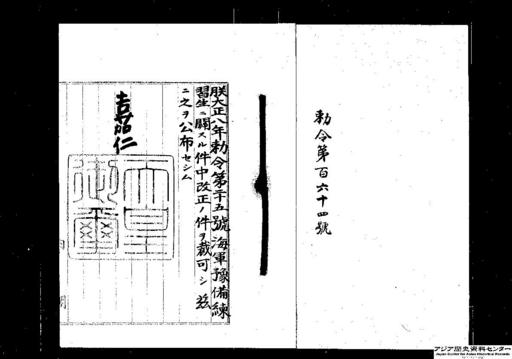 勅令第百六十四號
朕大正八年勅令第二十五號海軍豫備練
習生ニ關スル件中改正ノ件ヲ裁可シ茲
ニ之ヲ公布セシム
嘉仁
天皇
御璽
アジア歴史資料センター
Japan Center for Asian Historical Records